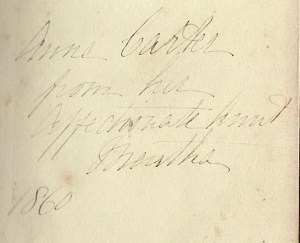 Anne Carter
from her
Affectionate Aunt
Martha
1860